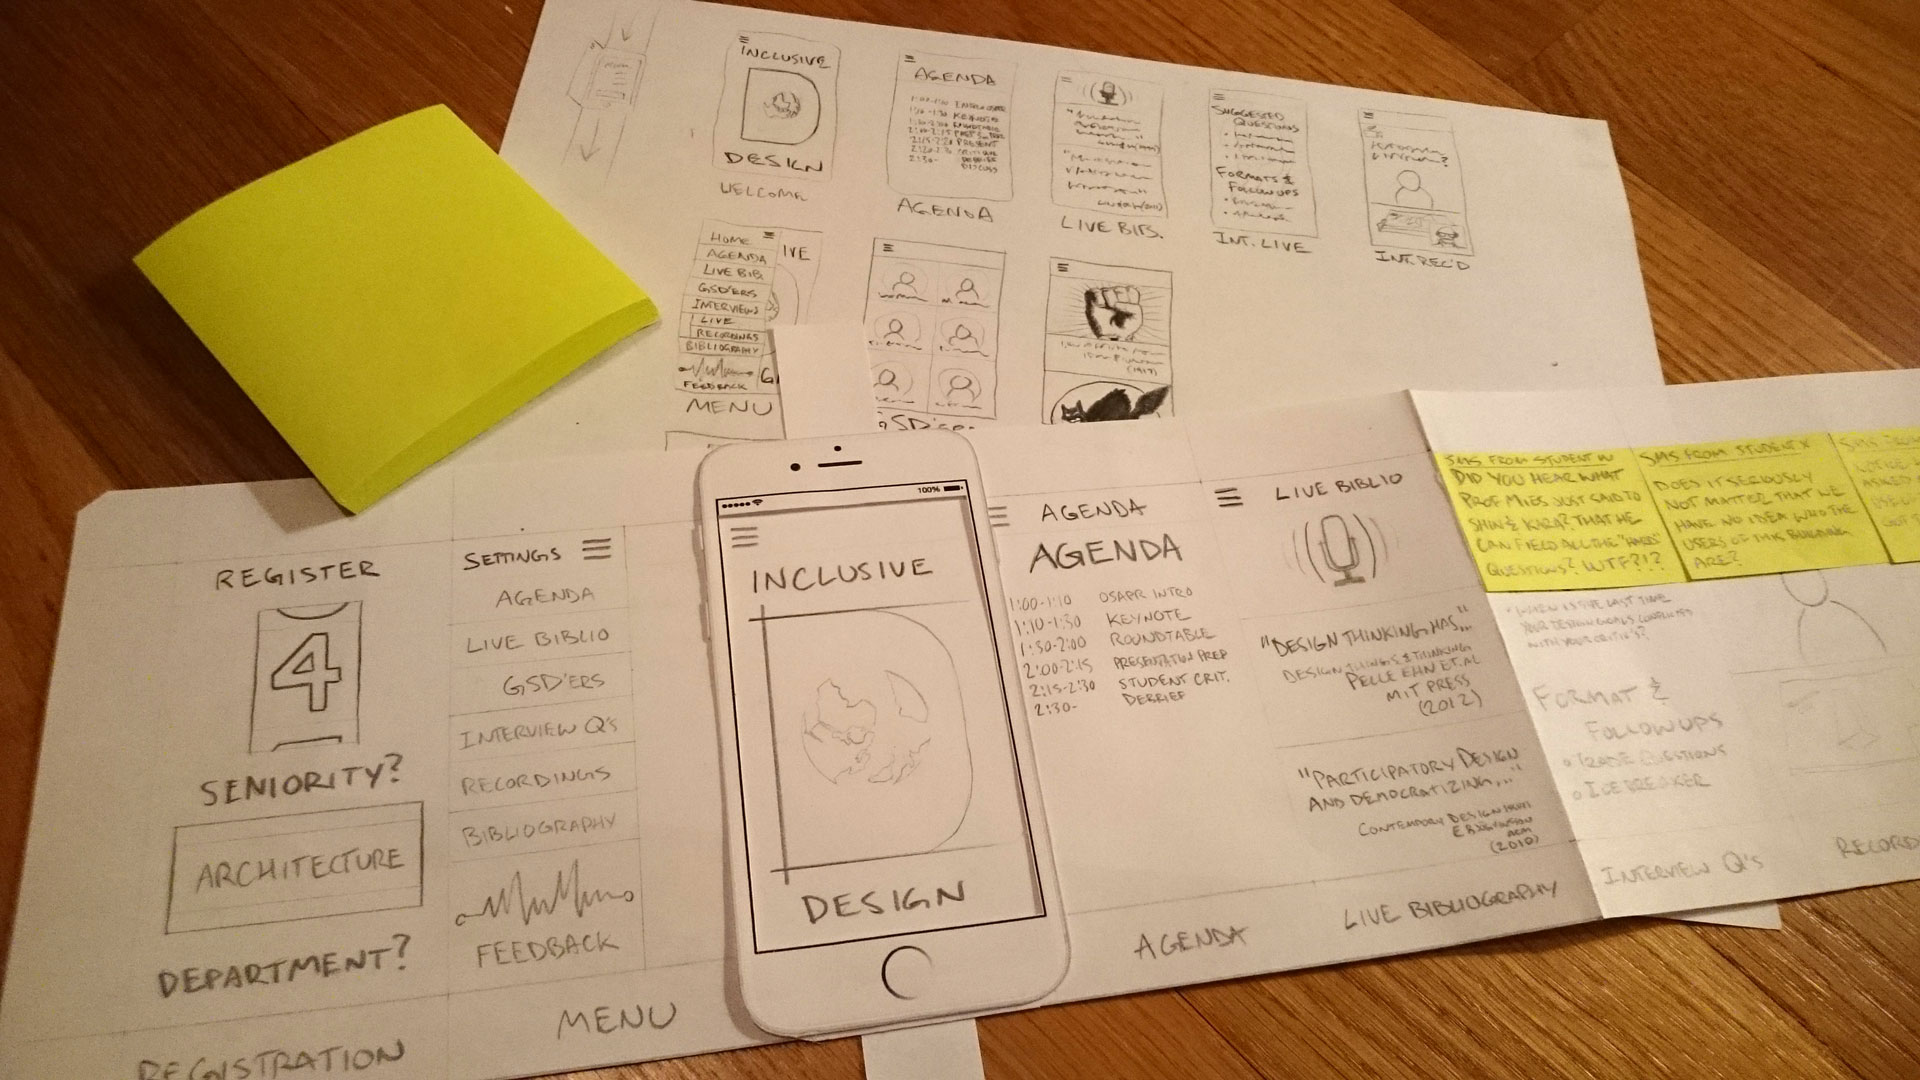 INCLUSIVE
DESIGN
WELCOME
AGENDA
1:00-1:10
1:10-1:30 KEYNOTE
1:30-2:00 ROUNDTABLE
2:00-2:15
2:15-2:20 PRESENT
2:20-2:30 CRITIQUE
2:30- DEBRIEF
DISCUSS
AGENDA
LIVE BIBS.
SUGGESTED
QUESTIONS
FORMATS &
FOLLOWUPS
INT. LIVE
INT. REC'D
HOME
AGENDA
LIVE BIB.
GSD'ERS
INTERVIEWS
LIVE
RECORDINGS
BIBLIOGRAPHY
FEEDBACK
IVE
G
MENU
(1917)
REGISTER
4
SENIORITY?
ARCHITECTURE
DEPARTMENT?
REGISTRATION
SETTINGS
AGENDA
LIVE BIBLIO
GSD'ERS
INTERVIEW Q's
RECORDINGS
BIBLIOGRAPHY
FEEDBACK
MENU
100%
INCLUSIVE
DESIGN
AGENDA
AGENDA
1:00-1:10 OSAPR INTRO
1:10-1:30 KEYNOTE
1:30-2:00 ROUNDTABLE
2:00-2:15 PRESENTATION PREP
2:15-2:30 STUDENT CRIT.
2:30- DEBRIEF
AGENDA
LIVE BIBLIO
"DESIGN THINKING HAS..."
DESIGN THINGS & THINKING
PELLE EHN ET. AL
MIT PRESS
(2012)
"PARTICIPATORY DESIGN
AND DEMOCRATIZING,..."
ACM
(2010)
LIVE BIBLIOGRAPHY
SMS FROM STUDENT W
DID YOU HEAR WHAT
PROF MIES JUST SAID TO
SHIN & KARA? THAT HE
CAN FIELD ALL THE "HARD"
QUESTIONS? WTF?!?
SMS FROM STUDENT X
DOES IT SERIOUSLY
NOT MATTER THAT WE
HAVE NO IDEA WHO THE
USERS OF THIS BUILDING
ARE?
SMS FROM
NOTICE
ASKED
"WHEN IS THE LAST TIME
YOUR DESIGN GOALS CONFLICTED
WITH YOUR CRITIC'S?
FORMAT &
FOLLOWUPS
TRADE QUESTIONS
ICEBREAKER
INTERVIEW Q's
RECORD